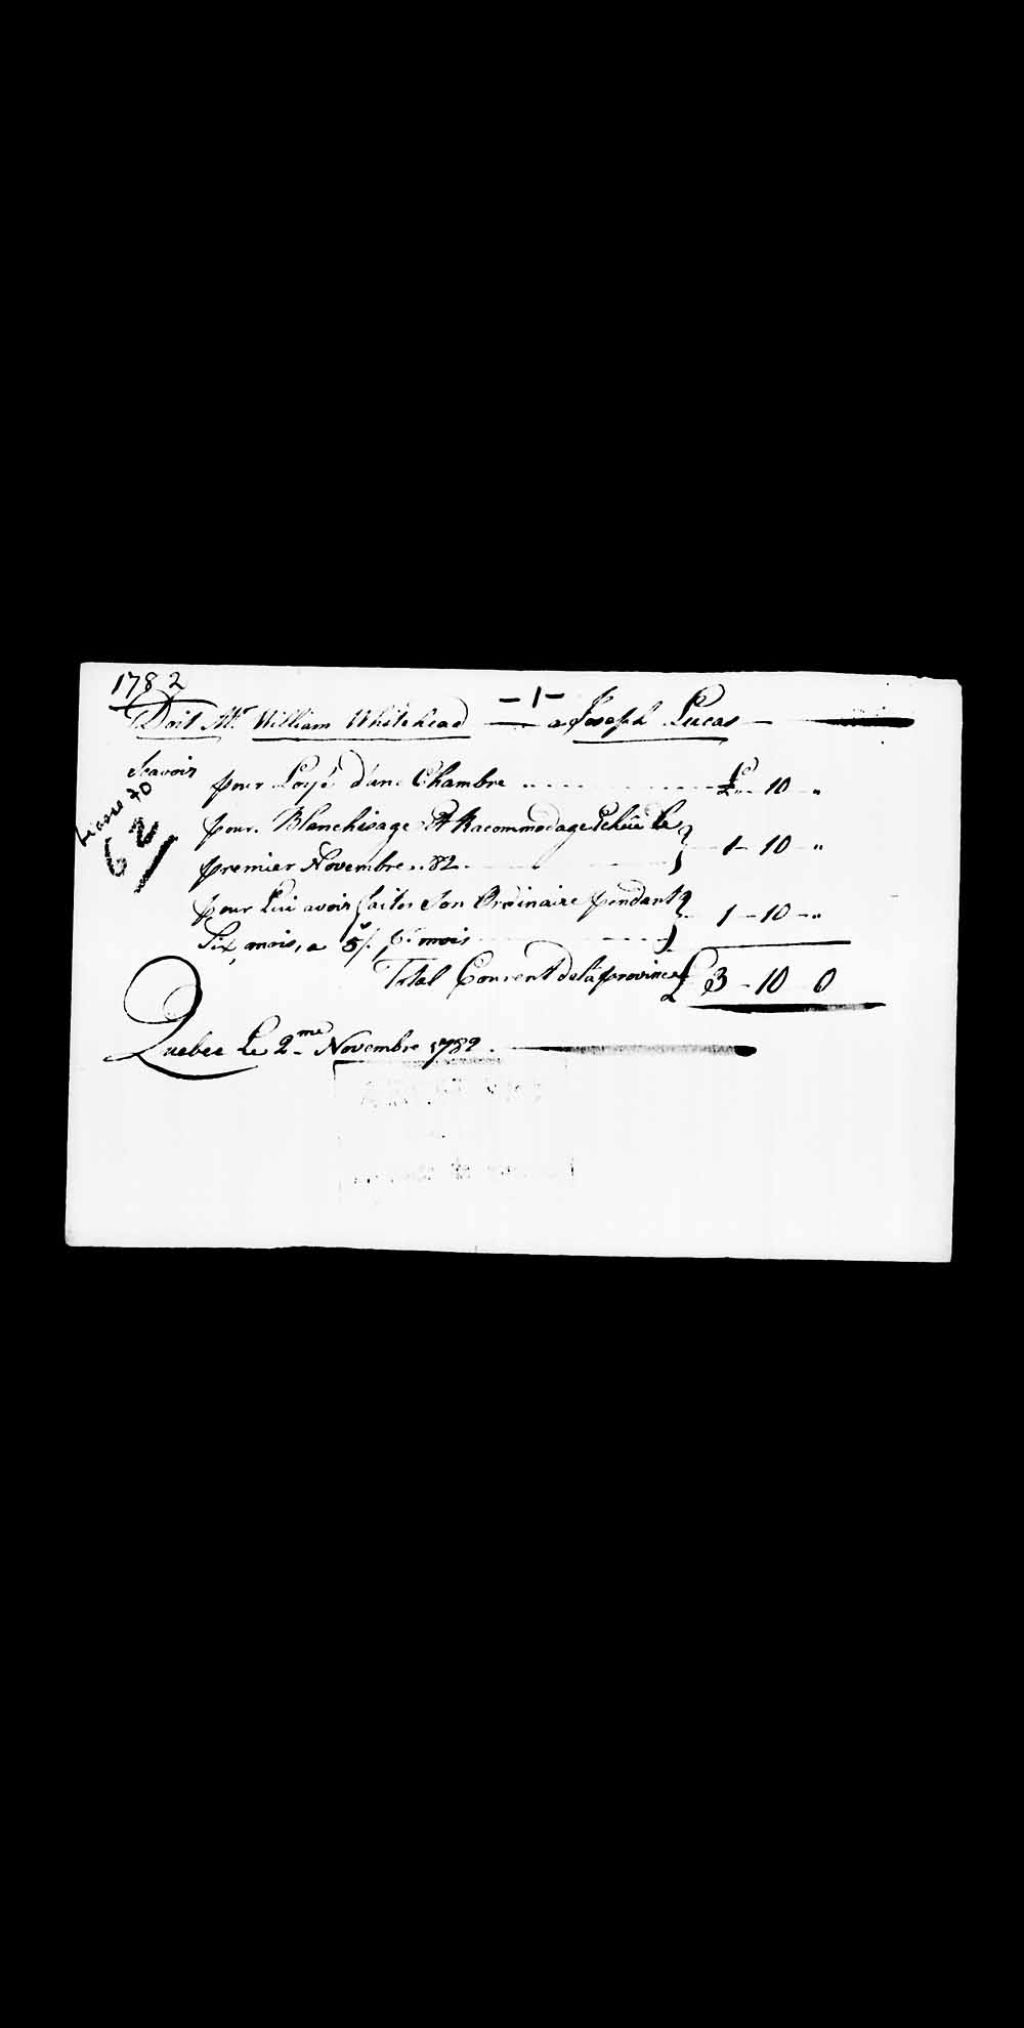 1782
— 1 —
Doit Mr. William Whitehead — a Joseph Lucas —
Scavoir
pour Loyé d'une Chambre ........ £ .. 10 - "
Liasse 70
62/
pour Blanchisage Et Racommodage Echûe le } 1 - 10 - "
premier Novembre .. 82.
pour Lui avoir faites Son Ordinaire pendant } 1 - 10 - "
Six mois, a 5/. pr. mois
Total Courent de la province £ 3 - 10 0
Quebec Le 2.me Novembre 1782. —